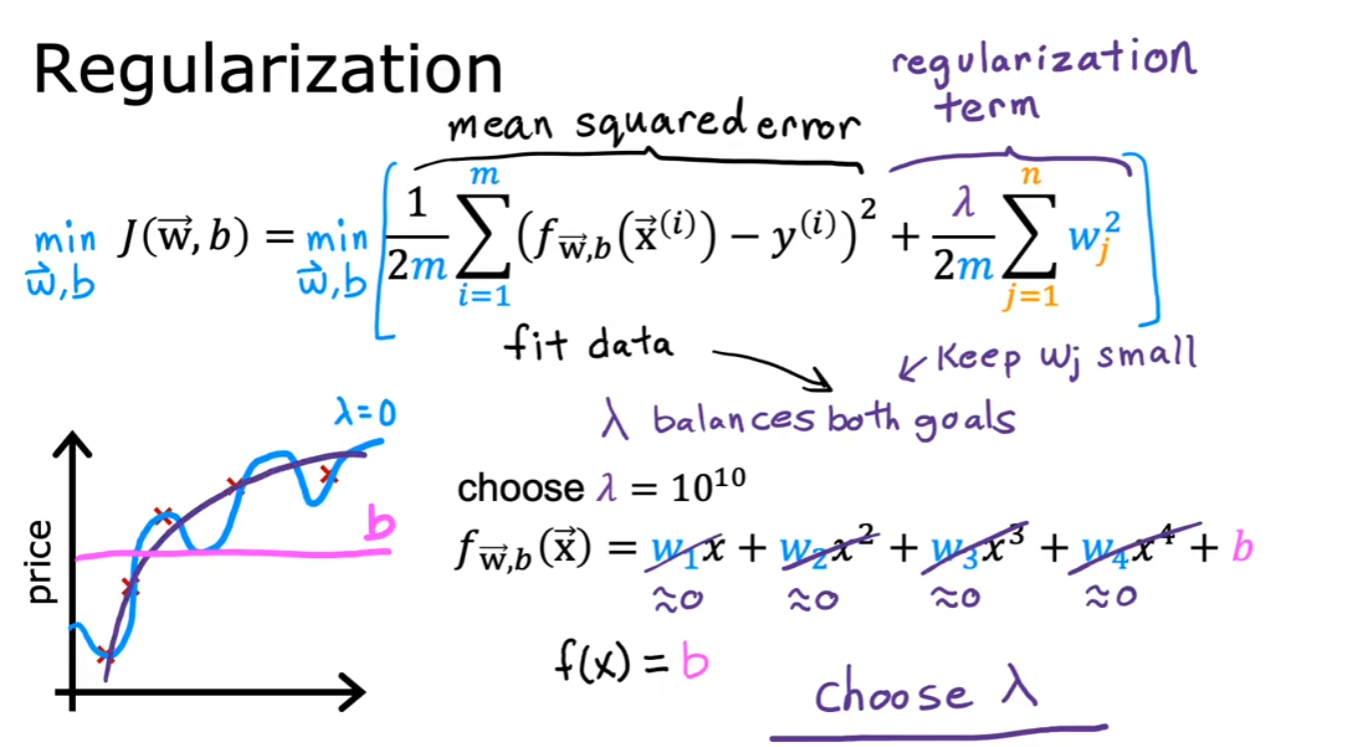 Regularization
regularization
term
mean squared error
min w⃗,b J(w⃗, b) = min w⃗,b [ 1/2m ∑ᵢ₌₁ᵐ (f w⃗,b(x⃗⁽ⁱ⁾) − y⁽ⁱ⁾)² + λ/2m ∑ⱼ₌₁ⁿ wⱼ² ]
fit data
Keep wj small
λ balances both goals
λ=0
b
price
choose λ = 10¹⁰
f w⃗,b(x⃗) = w₁x + w₂x² + w₃x³ + w₄x⁴ + b
≈0 ≈0 ≈0 ≈0
f(x) = b
choose λ